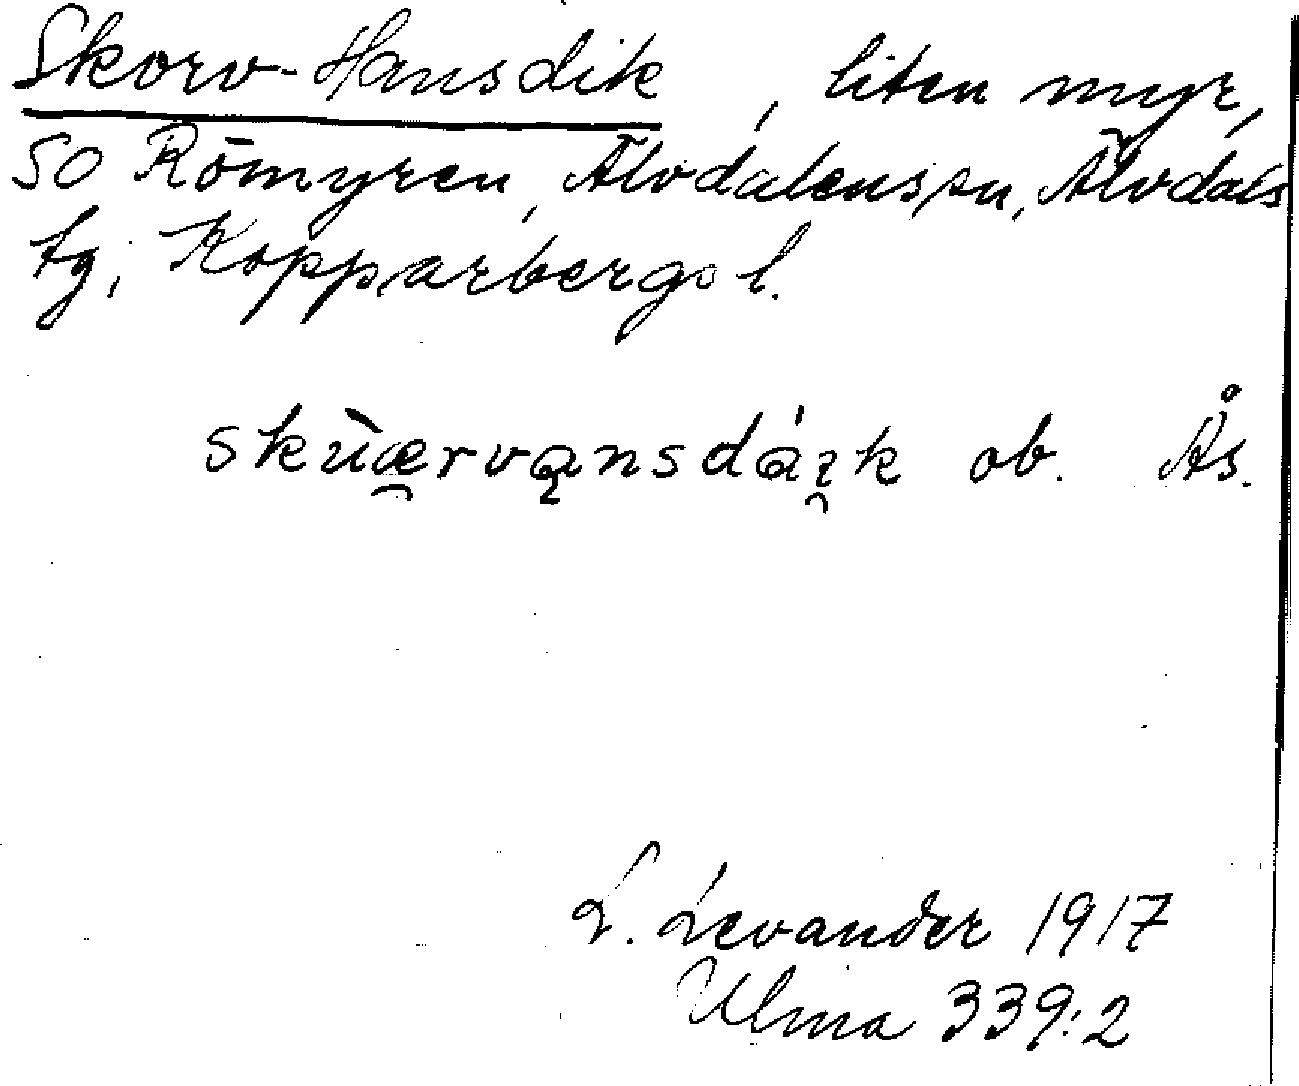 Skorv-Hansdik, liten myr,
SO Römyren, Älvdalens sn, Älvdals
tg, Kopparbergs l.
skùæ̯rvąnsdáı̯k ob. Ås.
L. Levander 1917
Ulma 339:2